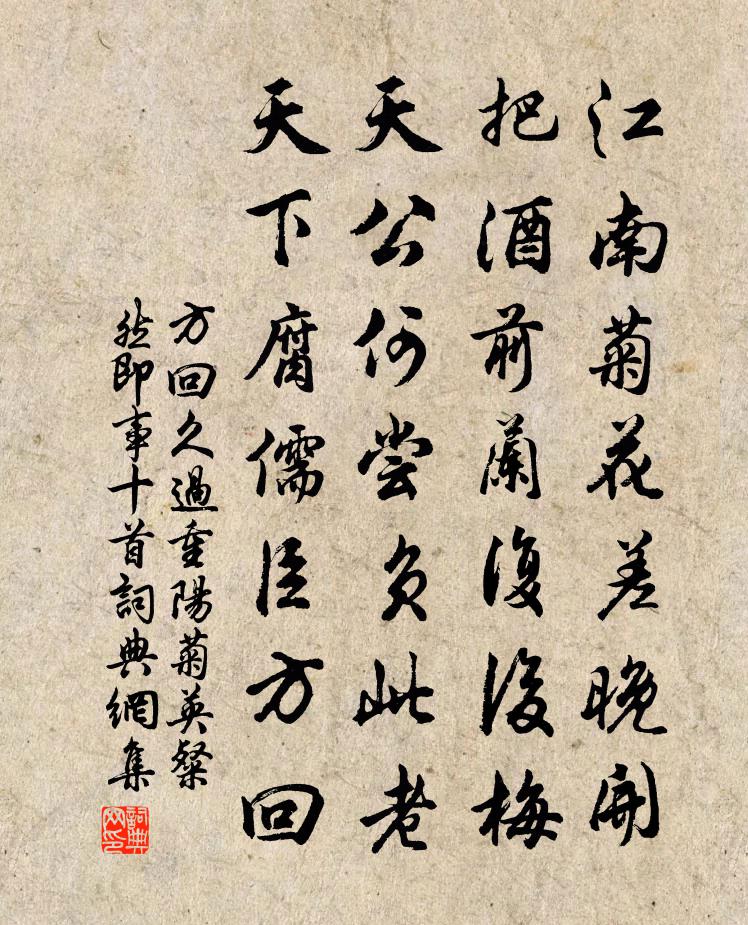 江南菊花差晚開
把酒前蘭復後梅
天公何嘗負此老
天下腐儒臣方回
方回久過重陽菊英粲
然即事十首詞典網集
詞典網印